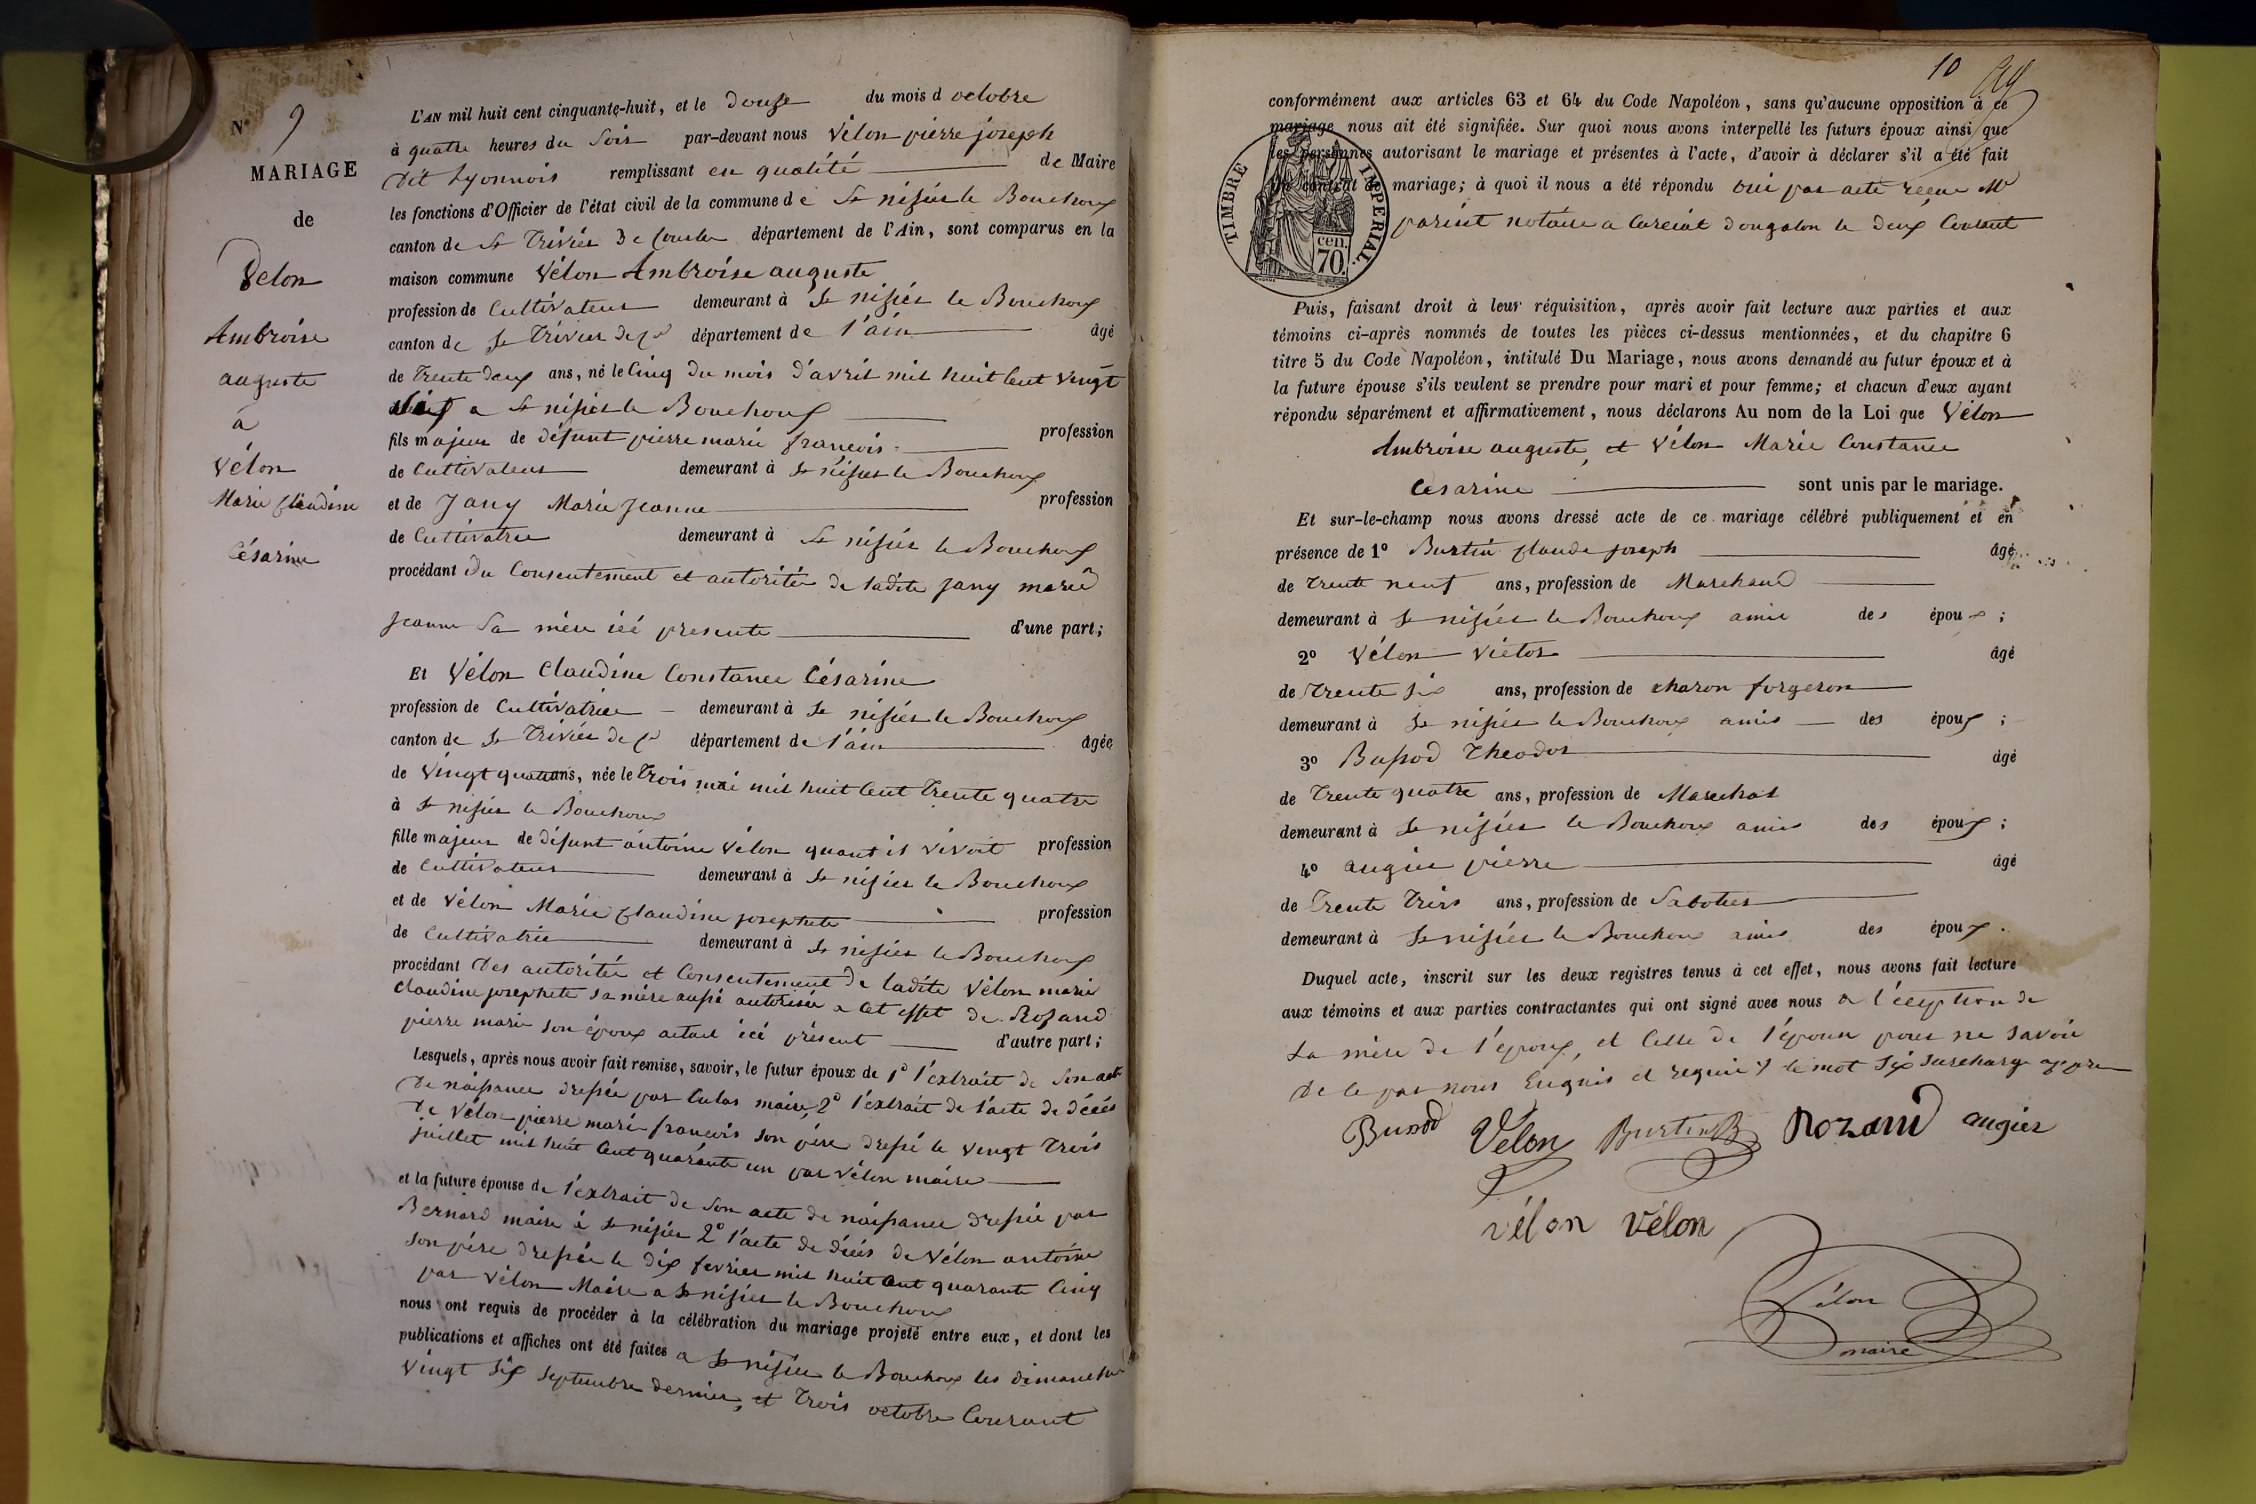 N° 9
MARIAGE
de
Velon
Ambroise
auguste
à
Vélon
Marie Claudine
Césarine
L'AN mil huit cent cinquante-huit, et le douze du mois d octobre
à quatre heures du Soir par-devant nous Vélon pierre joseph
dit Lyonnois remplissant en qualité de Maire
les fonctions d'Officier de l'état civil de la commune de St nisier le Bouchoux
canton de St Trivier de Courtes département de l'Ain, sont comparus en la
maison commune Vélon Ambroise auguste
profession de Cultivateur demeurant à St nisier le Bouchoux
canton de St Trivier de Cs département de l'ain âgé
de Trente deux ans, né le Cinq du mois d'avril mil huit Cent vingt
six a St nisier le Bouchoux
fils majeur de défunt pierre marie francois profession
de Cultivateur demeurant à St nisier le Bouchoux
et de Jany Marie Jeanne profession
de Cultivatrice demeurant à St nisier le Bouchoux
procédant du Consentement et autorité de ladite Jany marie
Jeanne Sa mère ici presente d'une part;
Et Vélon Claudine Constance Césarine
profession de Cultivatrice demeurant à St nisier le Bouchoux
canton de St Trivier de Cs département de l'ain âgée
de Vingt quatre ans, née le Trois mai mil huit Cent Trente quatre
à St nisier le Bouchoux
fille majeur de défunt antoine Vélon quant il vivoit profession
de Cultivateur demeurant à St nisier le Bouchoux
et de Vélon Marie Claudine josephete profession
de Cultivatrice demeurant à St nisier le Bouchoux
procédant des autorité et Consentement de ladite Vélon marie
Claudine josephete sa mère aussi autorisée a Cet effet de Rosand
pierre marie son époux actuel ici présent d'autre part;
Lesquels, après nous avoir fait remise, savoir, le futur époux de 1° l'extrait de Son acte
de naissance dressée par Culas maire, 2° l'extrait de l'acte de décés
de Vélon pierre marie francois son père dressé le vingt Trois
juillet mil huit Cent quarante un par Vélon maire
et la future épouse de l'extrait de Son acte de naissance dressée par
Bernard maire à St nisier 2° l'acte de décés de Vélon antoine
son père dressée le dix fevrier mil huit Cent quarante Cinq
par Vélon Maire a St nisier le Bouchoux
nous ont requis de procéder à la célébration du mariage projeté entre eux, et dont les
publications et affiches ont été faites a St nisier le Bouchoux les dimanches
Vingt Six Septembre dernier, et Trois octobre Courant
10
conformément aux articles 63 et 64 du Code Napoléon, sans qu'aucune opposition à ce
mariage nous ait été signifiée. Sur quoi nous avons interpellé les futurs époux ainsi que
les personnes autorisant le mariage et présentes à l'acte, d'avoir à déclarer s'il a été fait
un contrat de mariage; à quoi il nous a été répondu oui par acte reçue Me
parist notaire a Curciat dongalon le deux Courant
TIMBRE IMPERIAL.
cen.
70
Puis, faisant droit à leur réquisition, après avoir fait lecture aux parties et aux
témoins ci-après nommés de toutes les pièces ci-dessus mentionnées, et du chapitre 6
titre 5 du Code Napoléon, intitulé Du Mariage, nous avons demandé au futur époux et à
la future épouse s'ils veulent se prendre pour mari et pour femme; et chacun d'eux ayant
répondu séparément et affirmativement, nous déclarons Au nom de la Loi que Vélon
Ambroise auguste, et Vélon Marie Constance
Césarine sont unis par le mariage.
Et sur-le-champ nous avons dressé acte de ce mariage célébré publiquement et en
présence de 1° Burtin Claude joseph âgé
de Trente neuf ans, profession de Marchand
demeurant à St nisier le Bouchoux amis des époux ;
2° Vélon Victor âgé
de Trente Six ans, profession de charon forgeron
demeurant à St nisier le Bouchoux amis des époux ;
3° Bussod Theodor âgé
de Trente quatre ans, profession de Marechal
demeurant à St nisier le Bouchoux amis des époux ;
4° augier pierre âgé
de Trente Trois ans, profession de Sabotier
demeurant à St nisier le Bouchoux amis des époux.
Duquel acte, inscrit sur les deux registres tenus à cet effet, nous avons fait lecture
aux témoins et aux parties contractantes qui ont signé avec nous a l'éception de
La mère de l'époux, et Celle de l'épouse pour ne savoir
de ce par nous Enquis et requis le mot Six Surcharge
Bussod Vélon Burtin Rozand augier
vélon vélon
Vélon
maire